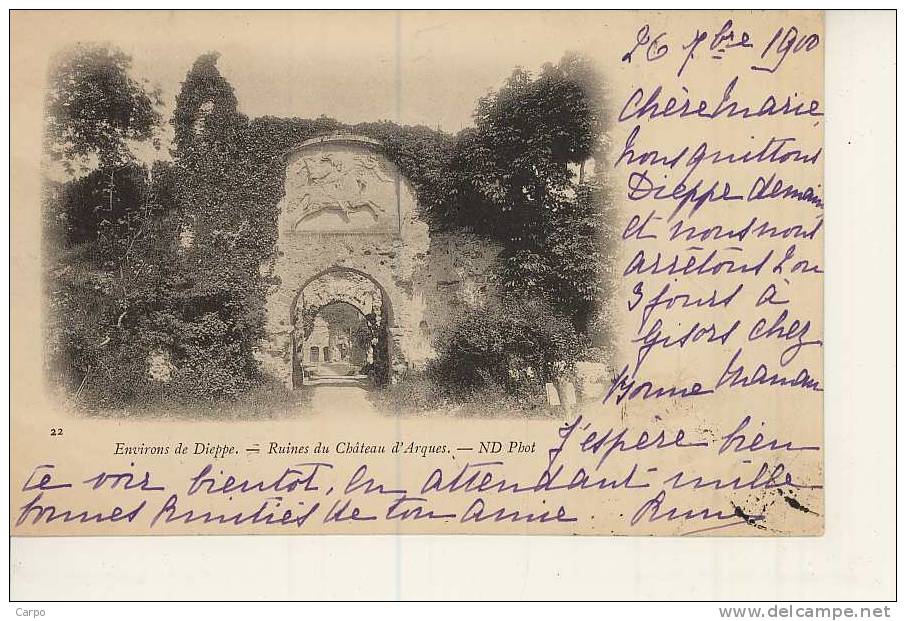 26 7bre 1900
Chère Marie,
nous quittons
Dieppe demain
et nous nous
arrêtons 2 ou
3 jours à
Gisors chez
bonne maman
22
Environs de Dieppe. — Ruines du Château d'Arques. — ND Phot
J'espère bien
te voir bientôt, en attendant mille
bonnes amitiés de ton amie
Carpo
www.delcampe.net